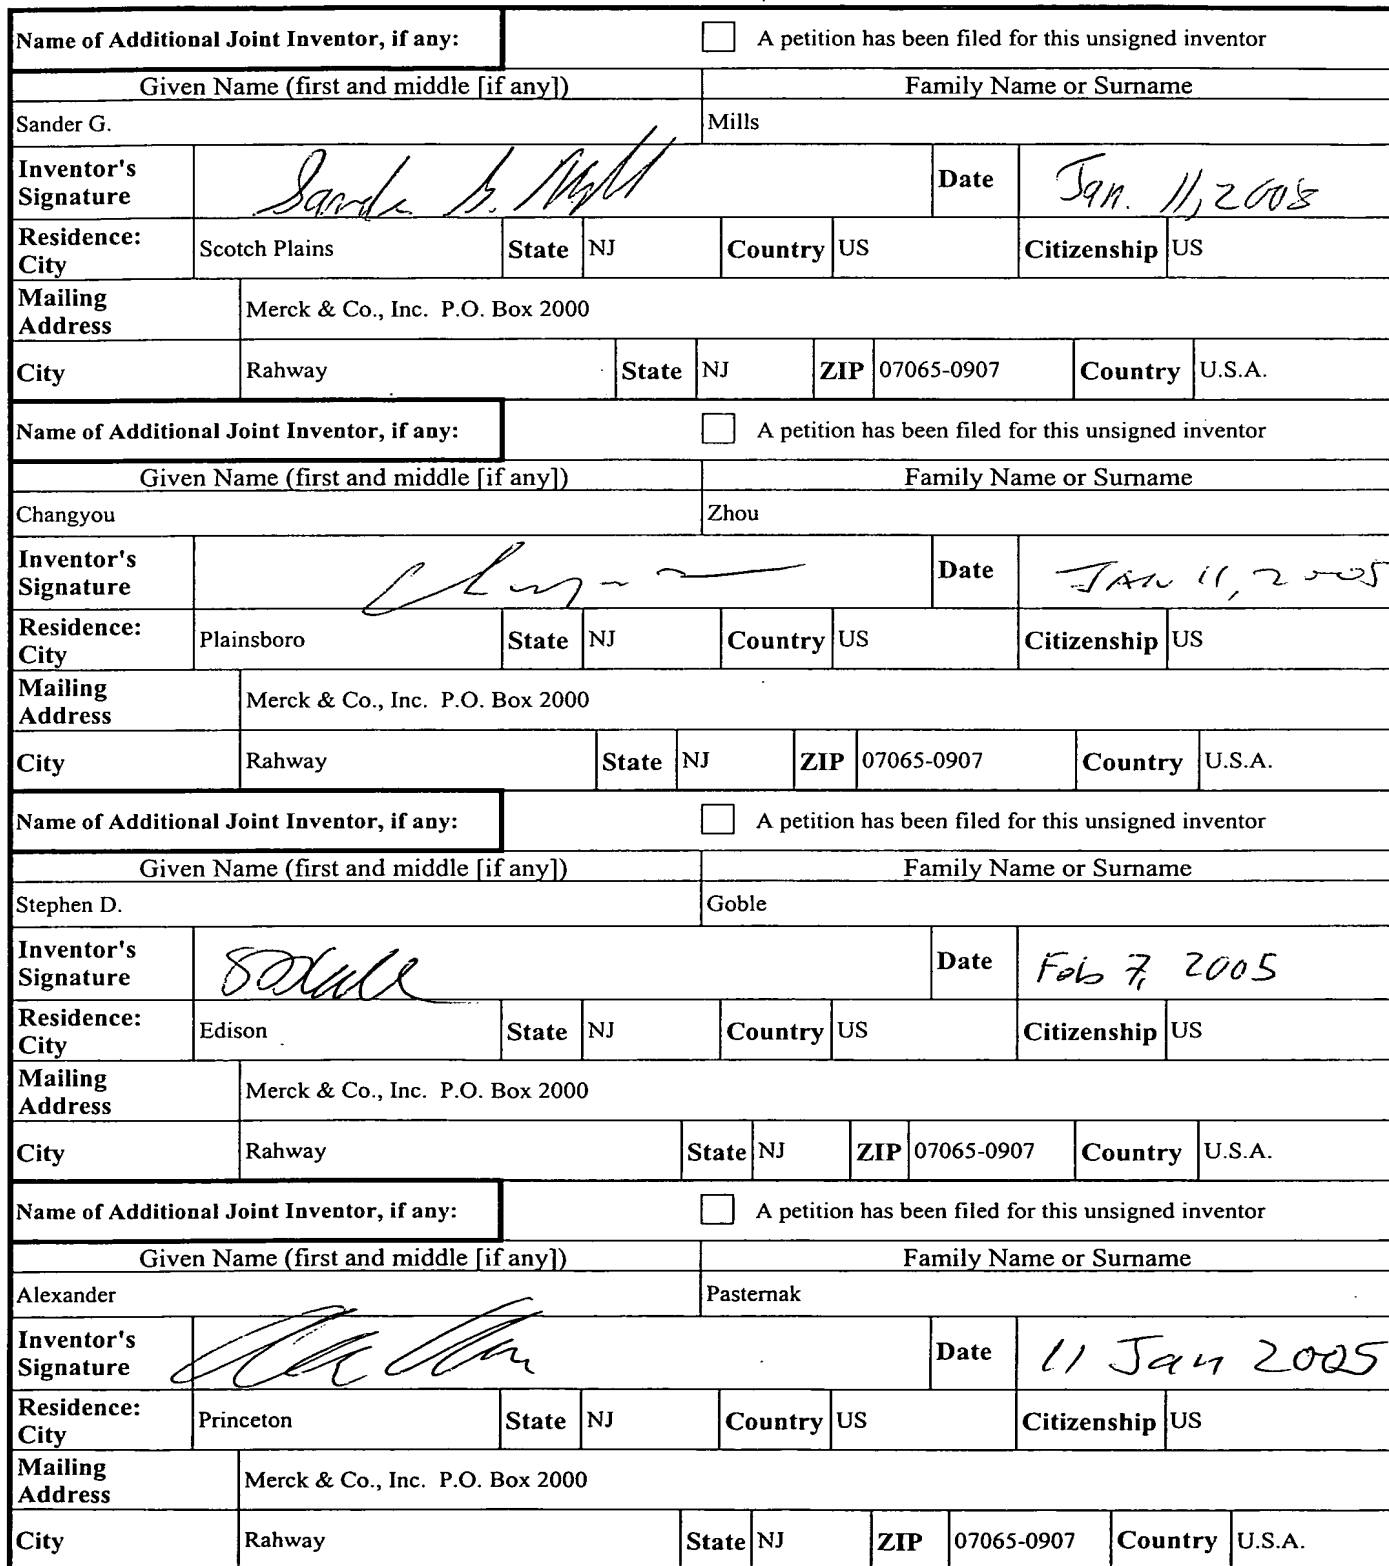 Name of Additional Joint Inventor, if any: A petition has been filed for this unsigned inventor
Given Name (first and middle [if any]) Family Name or Surname
Sander G. Mills
Inventor's Signature Sander G. Mills Date Jan. 11, 2008
Residence: City Scotch Plains State NJ Country US Citizenship US
Mailing Address Merck & Co., Inc. P.O. Box 2000
City Rahway State NJ ZIP 07065-0907 Country U.S.A.
Name of Additional Joint Inventor, if any: A petition has been filed for this unsigned inventor
Given Name (first and middle [if any]) Family Name or Surname
Changyou Zhou
Inventor's Signature Date JAN 11, 2005
Residence: City Plainsboro State NJ Country US Citizenship US
Mailing Address Merck & Co., Inc. P.O. Box 2000
City Rahway State NJ ZIP 07065-0907 Country U.S.A.
Name of Additional Joint Inventor, if any: A petition has been filed for this unsigned inventor
Given Name (first and middle [if any]) Family Name or Surname
Stephen D. Goble
Inventor's Signature Date Feb 7, 2005
Residence: City Edison State NJ Country US Citizenship US
Mailing Address Merck & Co., Inc. P.O. Box 2000
City Rahway State NJ ZIP 07065-0907 Country U.S.A.
Name of Additional Joint Inventor, if any: A petition has been filed for this unsigned inventor
Given Name (first and middle [if any]) Family Name or Surname
Alexander Pasternak
Inventor's Signature Date 11 Jan 2005
Residence: City Princeton State NJ Country US Citizenship US
Mailing Address Merck & Co., Inc. P.O. Box 2000
City Rahway State NJ ZIP 07065-0907 Country U.S.A.